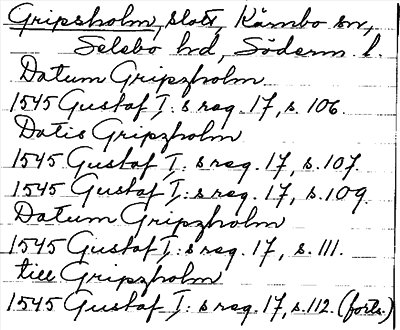 Gripsholm, slott, Kärnbo sn,
Selebo hd, Söderm. l.
Datum Gripzholm
1545 Gustaf I: s reg. 17, s. 106.
Datis Gripzholm
1545 Gustaf I: s reg. 17, s. 107.
1545 Gustaf I: s reg. 17, s. 109.
Datum Gripzholm
1545 Gustaf I: s reg. 17, s. 111.
till Gripzholm
1545 Gustaf I: s reg. 17, s. 112. (forts.)